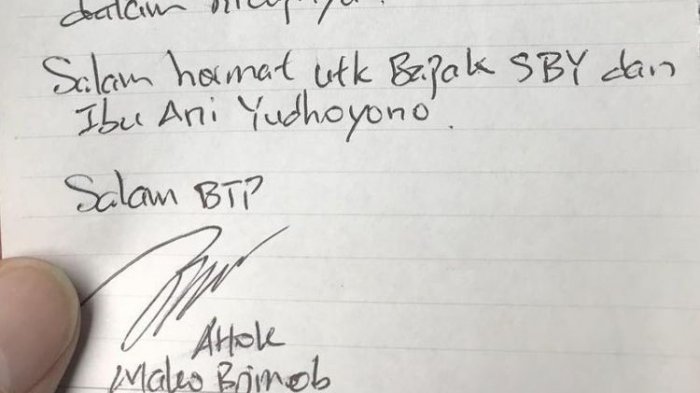 dalam
Salam hormat utk Bapak SBY dan
Ibu Ani Yudhoyono.
Salam BTP
AHok
Mako Brimob